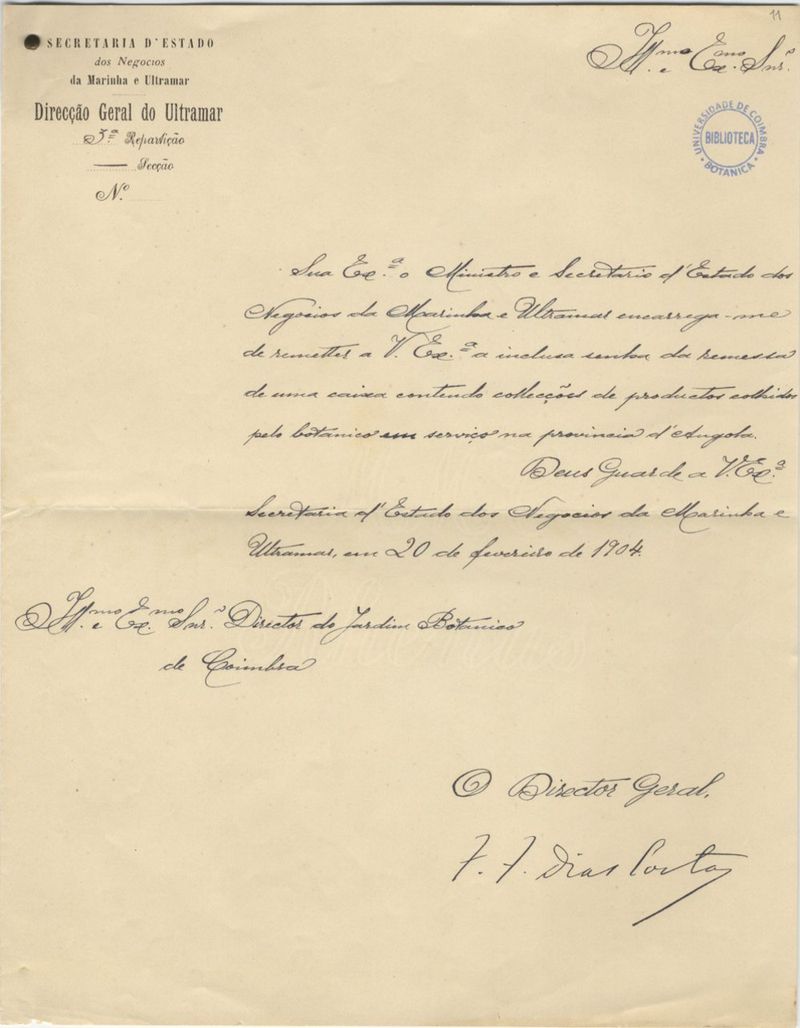 11
SECRETARIA D'ESTADO
dos Negocios
da Marinha e Ultramar
Direcção Geral do Ultramar
3.ª Repartição
Secção
N.º
Ill.mo e Ex.mo Snr.
UNIVERSIDADE DE COIMBRA
BIBLIOTECA
BOTANICA
Sua Ex.ª o Ministro e Secretario d'Estado dos
Negocios da Marinha e Ultramar encarrega-me
de remetter a V. Ex.ª a inclusa senha da remessa
de uma caixa contendo collecções de productos colhidos
pelo botanico em serviço na provincia d'Angola.
Deus Guarde a V. Ex.ª
Secretaria d'Estado dos Negocios da Marinha e
Ultramar, em 20 de fevereiro de 1904.
Ill.mo e Ex.mo Snr. Director do Jardim Botanico
de Coimbra
O Director Geral,
F. F. Dias Costa